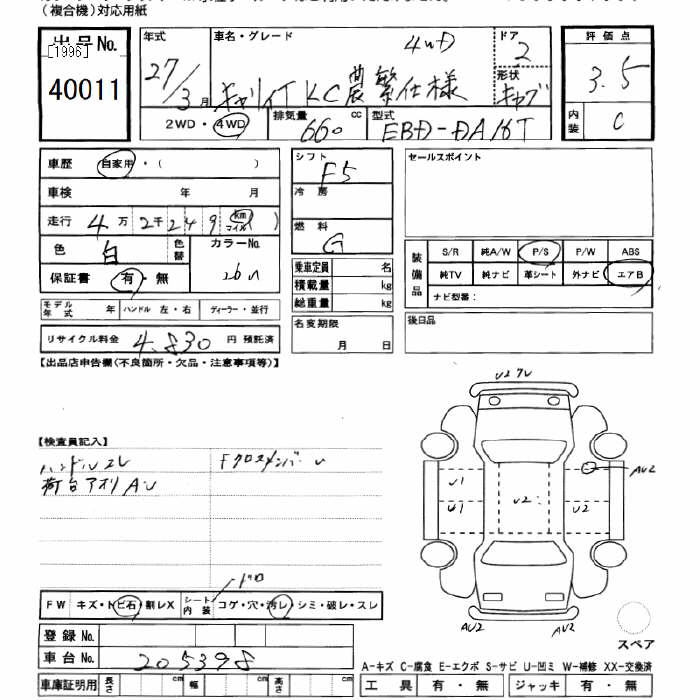 （複合機）対応用紙
出品No.
[1996]
40011
年式
27/3月
車名・グレード
4WD
キャリイT KC農繁仕様
ドア
2
形状
キャブ
2WD・4WD
排気量
660
cc
型式
EBD-DA16T
評価点
3.5
内装
C
車歴 自家用・（ ）
車検 年 月
走行 4万2千249 km マイル（ ）
色 白 色替
カラーNo.
26U
保証書 有・無
モデル年式 年 ハンドル 左・右 ディーラー・並行
リサイクル料金 4,830 円 預託済
シフト
F5
冷房
燃料
G
乗車定員 名
積載量 kg
総重量 kg
名変期限
月 日
セールスポイント
装備品
S/R 純A/W P/S P/W ABS
純TV 純ナビ 革シート 外ナビ エアB
ナビ型番：
後日品
【出品店申告欄（不良箇所・欠品・注意事項等）】
【検査員記入】
ハンドルスレ
荷台アオリ AU
Fクロスメンバー U
ドロ
FW キズ・トビ石・割レX
シート内装 コゲ・穴・汚レ・シミ・破レ・スレ
登録No.
車台No. 205398
車庫証明用 長さ cm 幅 cm 高さ cm
U2
U1
U1
U2
U2
AU2
AU2
AU2
スペア
A-キズ C-腐食 E-エクボ S-サビ U-凹ミ W-補修 XX-交換済
工具 有・無 ジャッキ 有・無